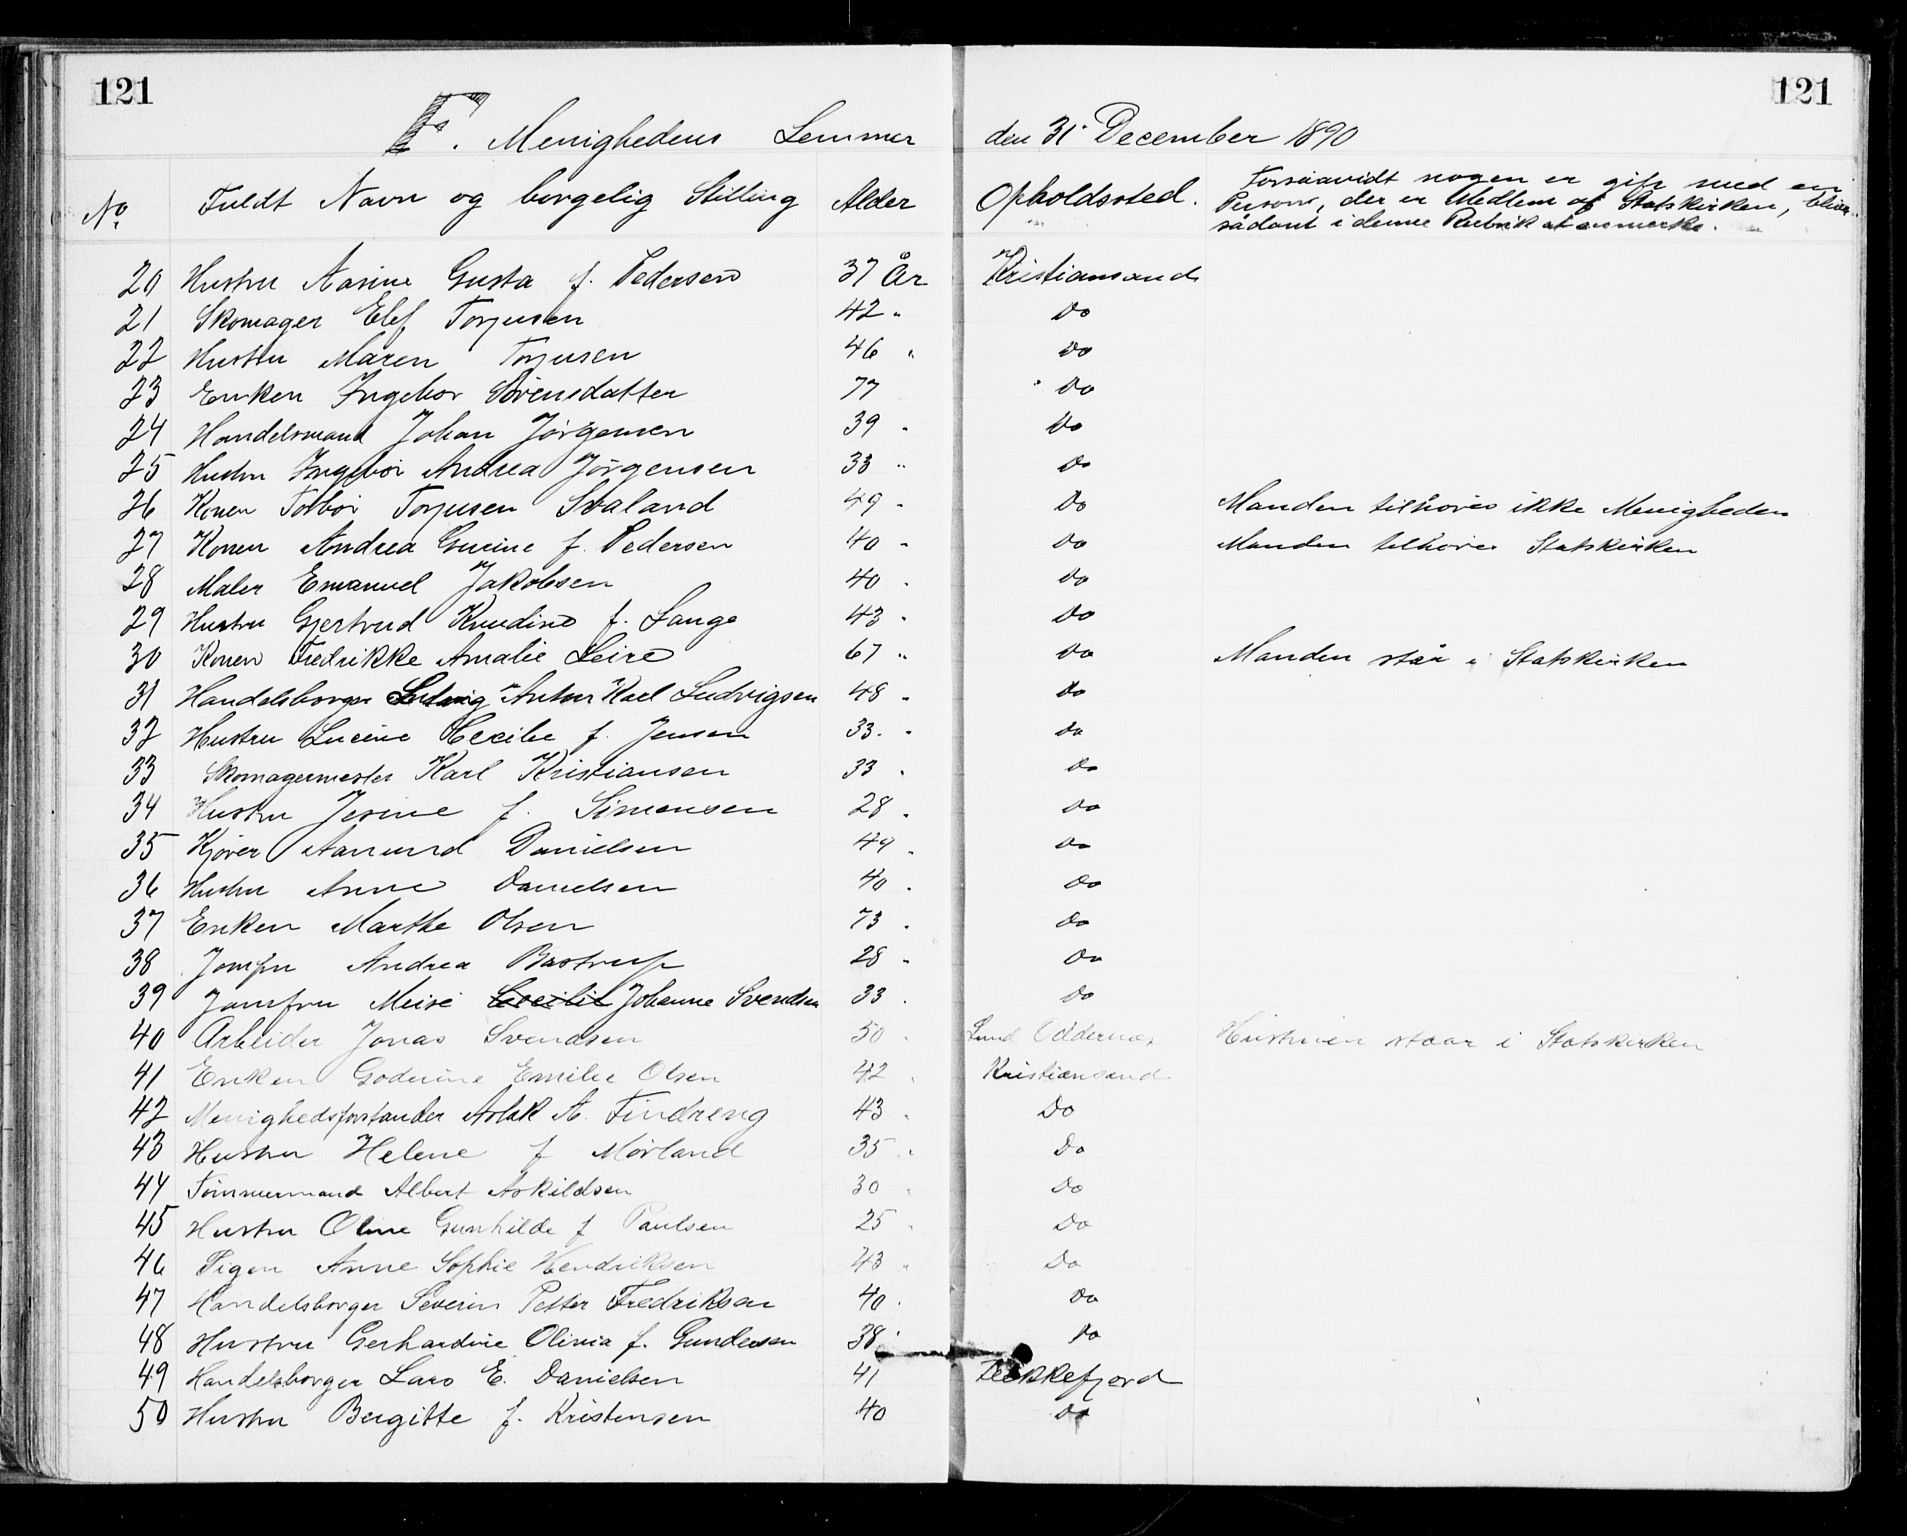 121 121
F. Menighedens Lemmer den 31. December 1890
No. Fuldt Navn og borgelig Stilling Alder Opholdssted. Forsaavidt nogen er gift med en
Person, der er Medlem af Statskirken, bliver
sådant i denne Rubrik at anmerke.
20 Hustru Aasine Gusta f. Pedersen 37 År Kristiansand
21 Skomager Elef Torjusen 42 " Do
22 Hustru Maren Torjusen 46 " Do
23 Enken Ingebor Sörensdatter 77 Do
24 Handelsmand Johan Jörgensen 39 " Do
25 Hustru Ingebor Andrea Jörgensen 33 " Do
26 Konen Tolbor Torjusen Svaland 49 " Do Manden tilhörer ikke Menigheden
27 Konen Andrea Gurine f. Pedersen 40 " Do Manden tilhörer Statskirken
28 Maler Emanuel Jakobsen 40 " Do
29 Hustru Gjertrud Knudine f. Lange 43 " Do
30 Konen Fredrikke Amalie Leire 67 " Do Manden står i Statskirken
31 Handelsborger Anton Karl Ludvigsen 48 " Do
32 Hustru Lucine Cecilie f. Jensen 33. " Do
33 Skomagermester Karl Kristiansen 33 " Do
34 Hustru Jesine f. Simonsen 28 " Do
35 Kjörer Aanund Danielsen 49 " Do
36 Hustru Anne Danielsen 40 " Do
37 Enken Marthe Olsen 73 " Do
38 Jomfru Andrea Bastrup 28 " Do
39 Jomfru Meire Cecilie Johanne Svendsen 33 " Do
40 Arbeider Jonas Svendsen 50 " Lund Oddernes Hustruen staar i Statskirken
41 Enken Goderine Emilie Olsen 42 " Kristiansand
42 Menighedsforstander Aslak A. Findreng 43 " Do
43 Hustru Helene f Mörland 35 " Do
44 Tömmermand Albert Askildsen 30 " Do
45 Hustru Oline Gunhilde f Paulsen 25 " Do
46 Pigen Anne Sophie Hendriksen 43 " Do
47 Handelsborger Severin Petter Fredriksen 40 " Do
48 Hustru Gerhardine Olivia f. Gundersen 38 " Do
49 Handelsborger Lars E. Danielsen 41 Flekkefjord
50 Hustru Bergitte f. Kristensen 40 Do